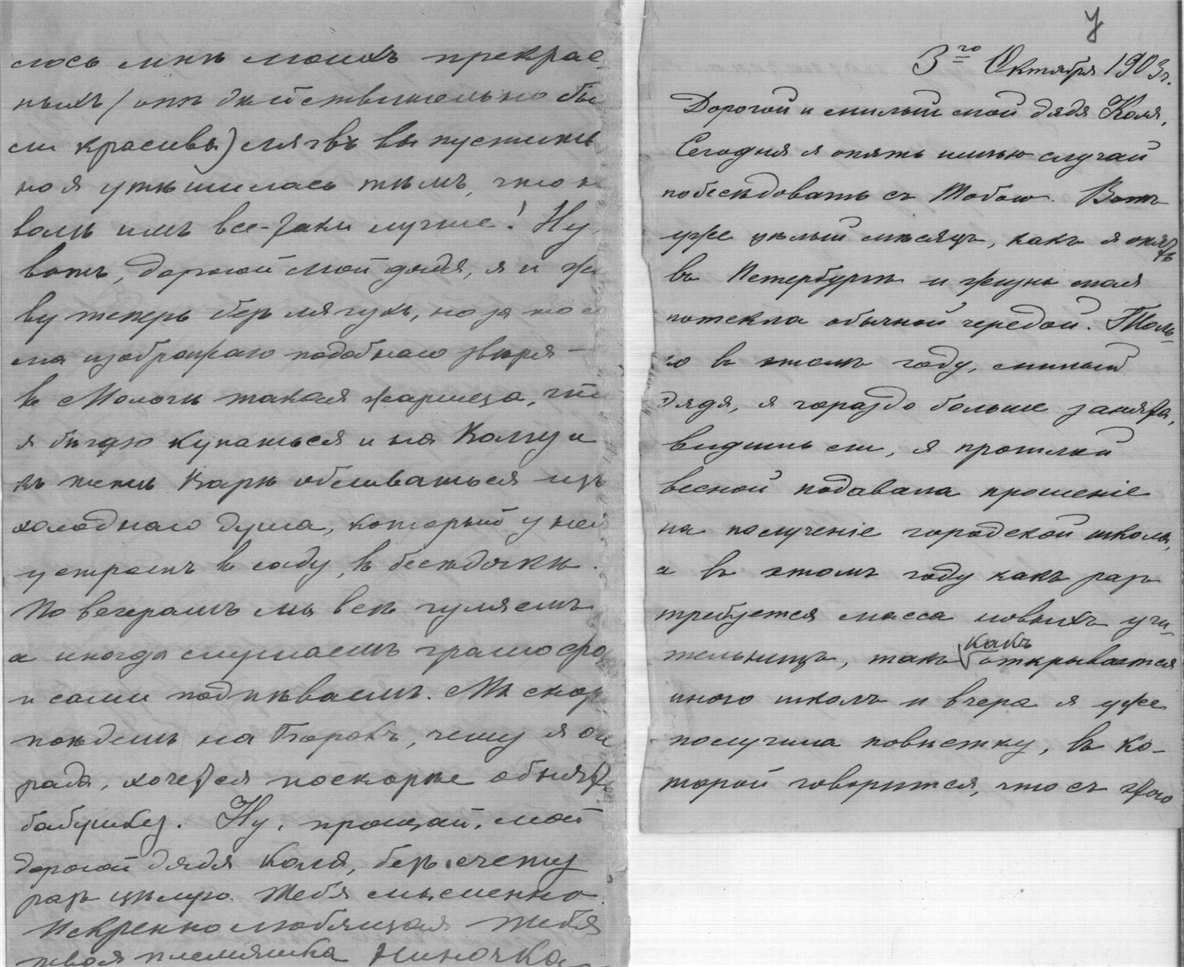 лось мнѣ моихъ прекрас
ныхъ (онѣ дѣйствительно бы
ли красивы) лягвъ выпустить
но я утѣшилась тѣмъ, что на
волѣ имъ все-таки лучше! Ну,
вотъ, дорогой мой дядя, я и жи
ву теперь безъ лягухъ, но за то са
ма изображаю подобнаго звѣря –
въ Мологѣ такая жарища, что
я бѣгаю купаться и на Волгу и
къ тетѣ Варѣ обливаться изъ
холоднаго душа, который у ней
устроенъ въ саду, въ бесѣдочкѣ.
По вечерамъ мы всѣ гуляемъ
а иногда слушаемъ граммофо
и сами подпѣваемъ. Мы скор
поѣдемъ на Борокъ, чему я оч
рада, хочется поскорѣе обнять
бабушку. Ну, прощай, мой
дорогой дядя Коля, безъ счету
разъ цѣлую Тебя мысленно.
Искренно любящая Тебя
твоя племяшка Ниночка

3го Октября 1903 г.
Дорогой и милый мой дядя Коля,
Сегодня я опять имѣю случай
побесѣдовать съ Тобою. Вотъ
уже цѣлый мѣсяцъ, какъ я опять
въ Петербургѣ и жизнь моя
потекла обычной чередой. Толь-
ко въ этомъ году, милый
дядя, я гораздо больше занята,
видишь ли, я прошлой
весной подавала прошеніе
на полученіе городской школы,
а въ этомъ году какъ разъ
требуется масса новыхъ учи-
тельницъ, такъ какъ открывается
много школъ и вчера я уже
получила повѣстку, въ ко-
торой говорится, что съ этого